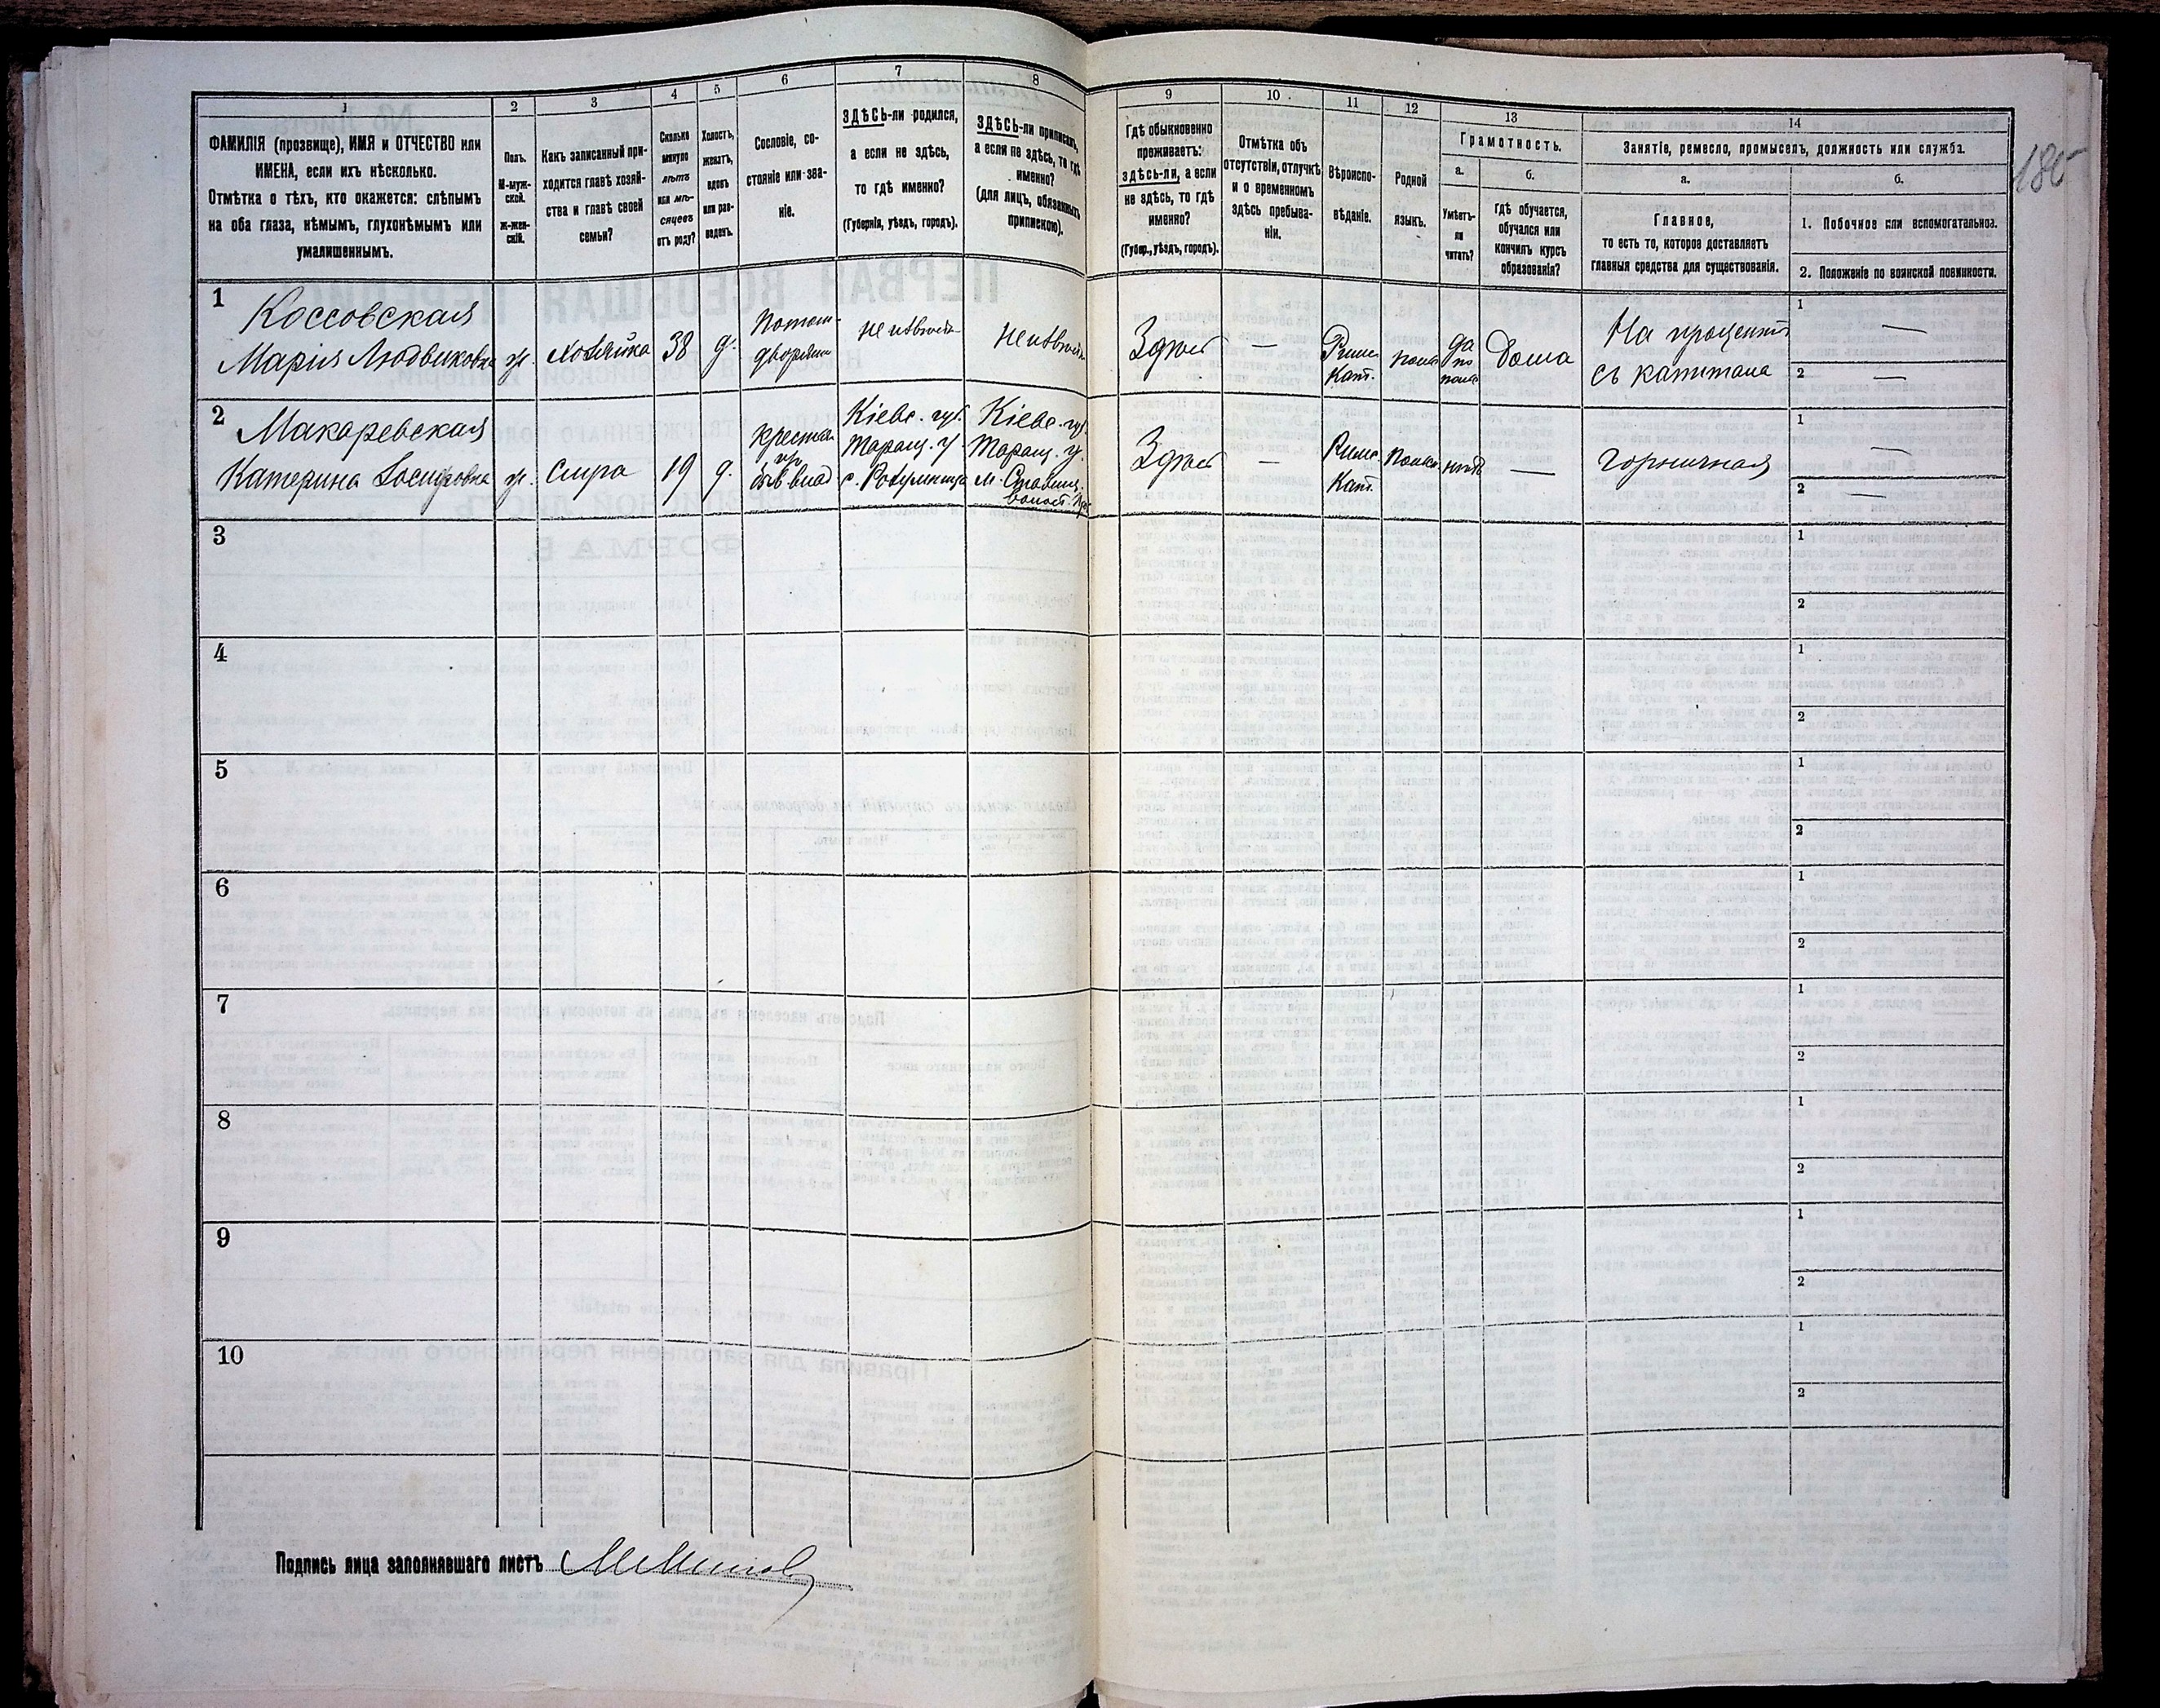 1
ФАМИЛІЯ (прозвище), ИМЯ и ОТЧЕСТВО или
ИМЕНА, если ихъ нѣсколько.
Отмѣтка о тѣхъ, кто окажется: слѣпымъ
на оба глаза, нѣмымъ, глухонѣмымъ или
умалишеннымъ.
2
Полъ.
М-муж-
ской.
Ж-жен-
скій.
3
Какъ записанный при-
ходится главѣ хозяй-
ства и главѣ своей
семьи?
4
Сколько
минуло
лѣтъ
или мѣ-
сяцевъ
отъ роду?
5
Холостъ,
женатъ,
вдовъ
или раз-
веденъ.
6
Сословіе, со-
стояніе или зва-
ніе.
7
ЗДѢСЬ-ли родился,
а если не здѣсь,
то гдѣ именно?
(Губернія, уѣздъ, городъ).
8
ЗДѢСЬ-ли приписанъ,
а если не здѣсь, то гдѣ
именно?
(для лицъ, обязанныхъ
припискою).
9
Гдѣ обыкновенно
проживаетъ:
здѣсь-ли, а если
не здѣсь, то гдѣ
именно?
(Губер., уѣздъ, городъ).
10
Отмѣтка объ
отсутствіи, отлучкѣ
и о временномъ
здѣсь пребыва-
ніи.
11
Вѣроиспо-
вѣданіе.
12
Родной
языкъ.
13
Грамотность.
а.
Умѣетъ-
ли
читать?
б.
гдѣ обучается,
обучался или
кончилъ курсъ
образованія?
14
Занятіе, ремесло, промыселъ, должность или служба.
а.
Главное,
то есть то, которое доставляетъ
главныя средства для существованія.
б.
1. Побочное или вспомогательное.
2. Положеніе по воинской повинности.
1
Коссовская
Марія Людвиковна
ж.
хозяйка
38
д.
Потом.
дворянк
Неизвѣстн
Неизвѣстн
Здѣсь
—
Римс.
Кат.
польс
да
по
польс
Дома
На проценты
съ капитала
1
—
2
—
2
Макаревская
Катерина Іосифовна
ж.
Слуга
19
д.
крестья
бывъ влад
Кіевс. губ.
Таращ. у.
Кіевс. губ.
Таращ. у.
волост.
Здѣсь
—
Римс.
Кат.
Польс.
нѣтъ
—
горничная
1
—
2
—
3
1
2
4
1
2
5
1
2
6
1
2
7
1
2
8
1
2
9
1
2
10
1
2
Подпись лица заполнявшаго листъ